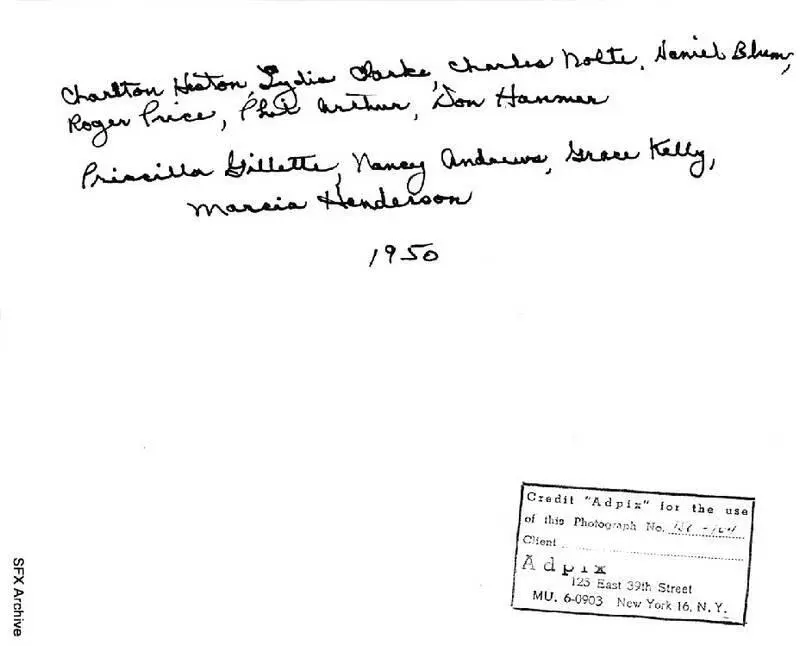 Charlton Heston, Lydia Clarke, Charles Nolte, Daniel Blum,
Roger Price, Phil Arthur, Don Hanmer
Priscilla Gillette, Nancy Andrews, Grace Kelly,
Marcia Henderson
1950
Credit "Adpix" for the use
of this Photograph No.
Client
Adpix
125 East 39th Street
MU. 6-0903 New York 16, N. Y.
SFX Archive